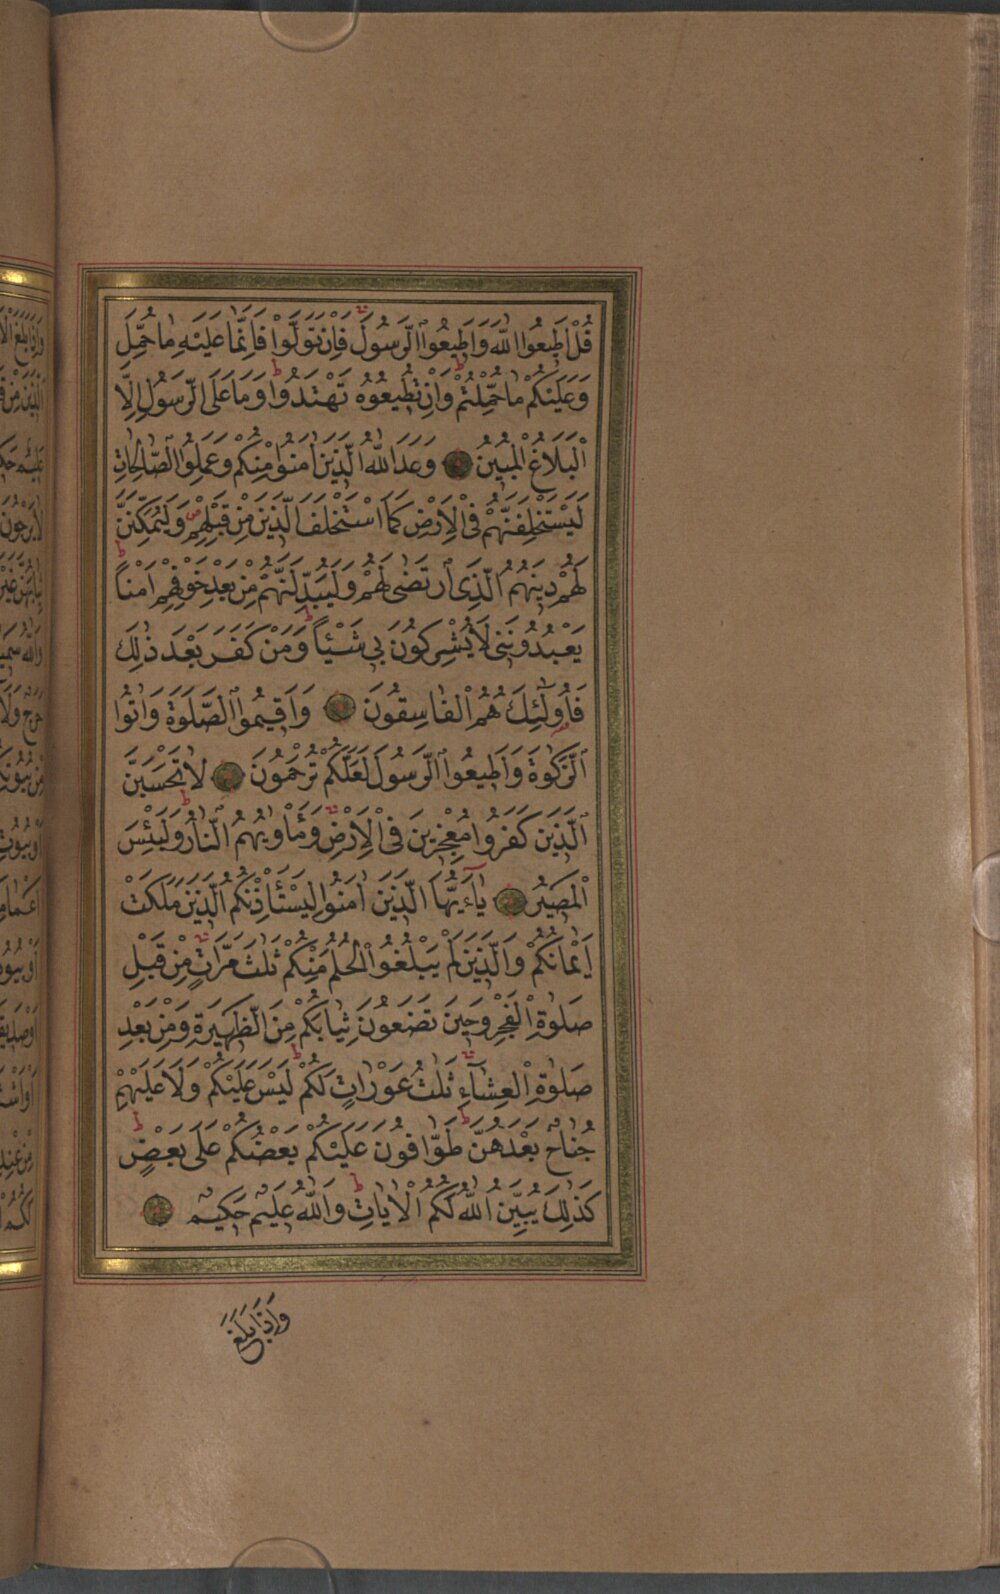 قُلْ اَطٖيعُوا اللّٰهَ وَاَطٖيعُوا الرَّسُولَ فَاِنْ تَوَلَّوْا فَاِنَّمَا عَلَيْهِ مَا حُمِّلَ
وَعَلَيْكُمْ مَا حُمِّلْتُمْ وَاِنْ تُطٖيعُوهُ تَهْتَدُوا وَمَا عَلَى الرَّسُولِ اِلَّا
الْبَلَاغُ الْمُبٖينُ وَعَدَ اللّٰهُ الَّذٖينَ اٰمَنُوا مِنْكُمْ وَعَمِلُوا الصَّالِحَاتِ
لَيَسْتَخْلِفَنَّهُمْ فِى الْاَرْضِ كَمَا اسْتَخْلَفَ الَّذٖينَ مِنْ قَبْلِهِمْ وَلَيُمَكِّنَنَّ
لَهُمْ دٖينَهُمُ الَّذِى ارْتَضٰى لَهُمْ وَلَيُبَدِّلَنَّهُمْ مِنْ بَعْدِ خَوْفِهِمْ اَمْنًا
يَعْبُدُونَنٖى لَا يُشْرِكُونَ بٖى شَيْئًا وَمَنْ كَفَرَ بَعْدَ ذٰلِكَ
فَاُولٰٓئِكَ هُمُ الْفَاسِقُونَ وَاَقٖيمُوا الصَّلٰوةَ وَاٰتُوا
الزَّكٰوةَ وَاَطٖيعُوا الرَّسُولَ لَعَلَّكُمْ تُرْحَمُونَ لَا تَحْسَبَنَّ
الَّذٖينَ كَفَرُوا مُعْجِزٖينَ فِى الْاَرْضِ وَمَأْوٰيهُمُ النَّارُ وَلَبِئْسَ
الْمَصٖيرُ يَٓا اَيُّهَا الَّذٖينَ اٰمَنُوا لِيَسْتَأْذِنْكُمُ الَّذٖينَ مَلَكَتْ
اَيْمَانُكُمْ وَالَّذٖينَ لَمْ يَبْلُغُوا الْحُلُمَ مِنْكُمْ ثَلٰثَ مَرَّاتٍ مِنْ قَبْلِ
صَلٰوةِ الْفَجْرِ وَحٖينَ تَضَعُونَ ثِيَابَكُمْ مِنَ الظَّهٖيرَةِ وَمِنْ بَعْدِ
صَلٰوةِ الْعِشَٓاءِ ثَلٰثُ عَوْرَاتٍ لَكُمْ لَيْسَ عَلَيْكُمْ وَلَا عَلَيْهِمْ
جُنَاحٌ بَعْدَهُنَّ طَوَّافُونَ عَلَيْكُمْ بَعْضُكُمْ عَلٰى بَعْضٍ
كَذٰلِكَ يُبَيِّنُ اللّٰهُ لَكُمُ الْاٰيَاتِ وَاللّٰهُ عَلٖيمٌ حَكٖيمٌ
وَاِذَا بَلَغَ